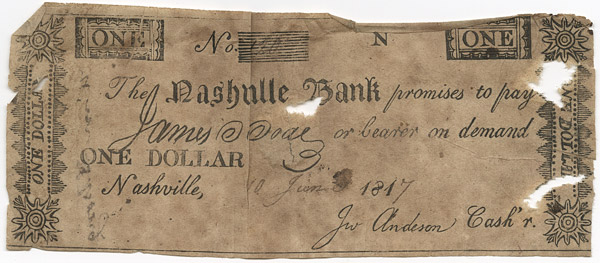 ONE No. N ONE
The Nashville Bank promises to pay
James or bearer on demand
ONE DOLLAR
Nashville, 10 June 1817
Jno Anderson Cash'r.
ONE DOLLAR
ONE DOLLAR